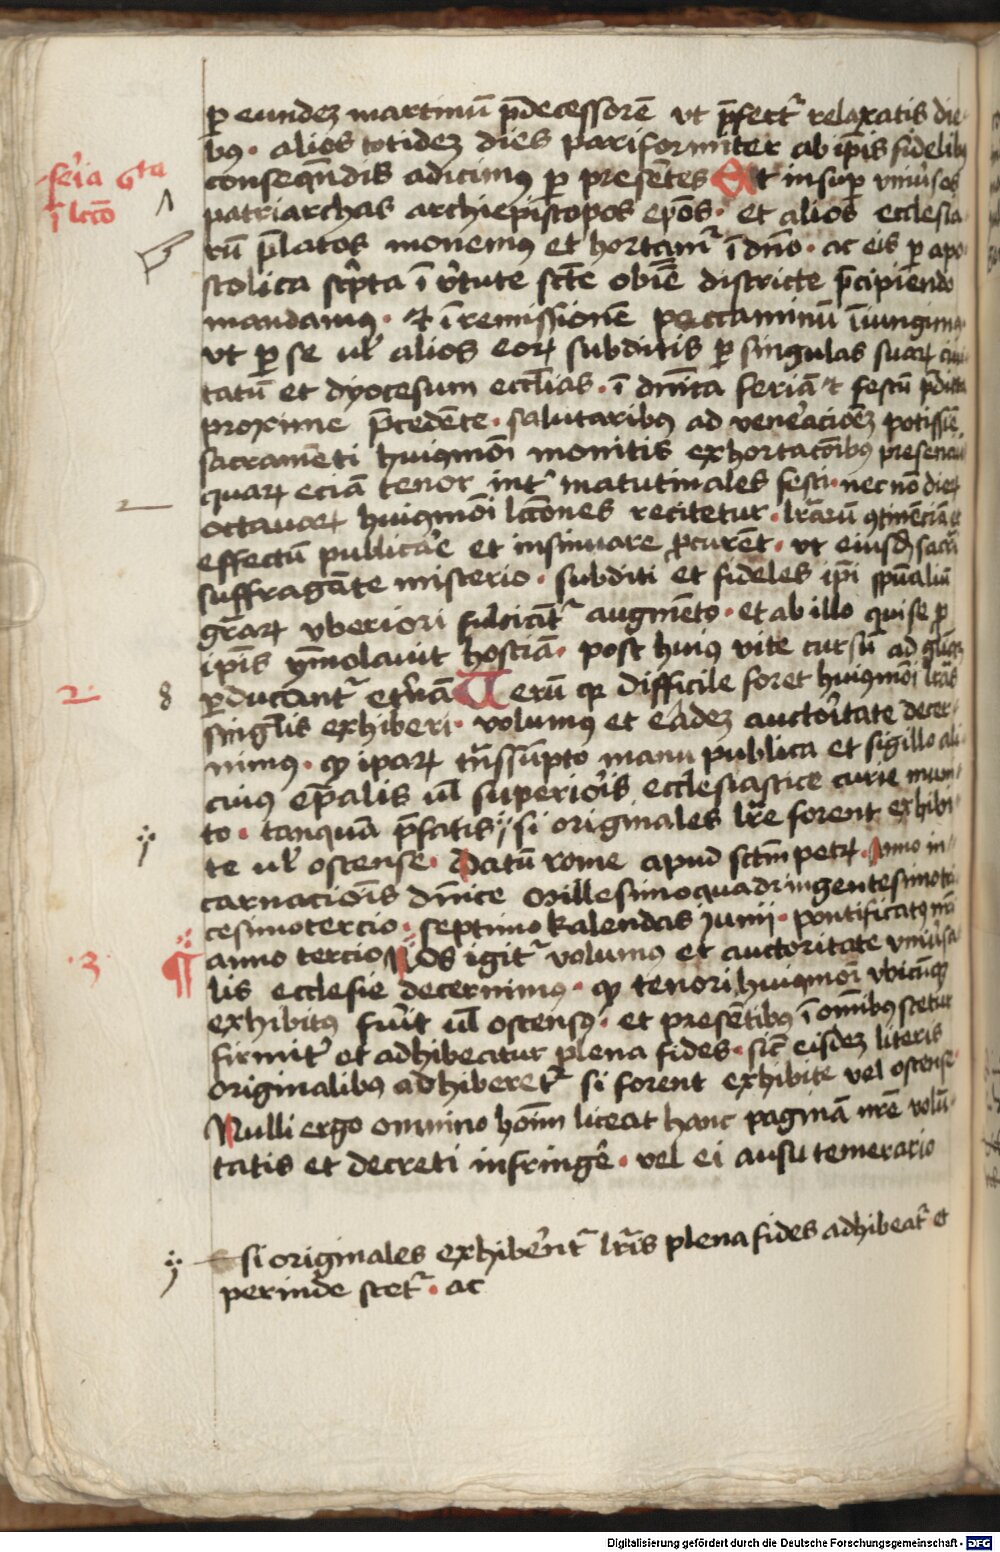 ꝑ eundeꝫ martinū p̄decessorē vt p̄fert᷑ relaxatis die
bꝰ · alios totideꝫ dies pariformiter ab ip̄is fidelibꝰ
conseqn̄dis adicimꝰ ꝑ presentes Et insuꝑ vniuℓsos
feria 6ta
i lcc̄o
patriarchas archiepiscopos ep̄os · et alios ecclesia
rū p̄latos monemꝰ et hortam᷑ ī dn̄o · ac eis ꝑ apo
stolica scͥpta ī v̓tute sc̄te obīe districte p̄cipiendo
mandamꝰ · et ī remissionē peccaminū īiungimꝰ
vt ꝑ se ul̓ alios eoꝝ subditis ꝑ singulas suaꝝ ciui
tatū et dyocesum eccl̄ias · ī dn̄ica feriā et festū p̄dictū
proxime p̄cedēte · salutaribꝰ ad venerac̄oeꝫ potissīe
sacramēti huiꝰmōi monitis exhortac̄oibꝰ presenciū
2
quaꝝ eciā tenor int᷑ matutinales festi · nec nō dieꝝ
octauaꝝ huiꝰmōi lcc̄ones recitetur · lr̄arū ꝯtinēciā et
effectū publicare et insinuare ꝓcurēt · vt eiusdē sacr̄i
suffragāte misterio · subditi et fideles ip̄i sp̄ualiū
gr̄aꝝ vberiori fulciāt᷑ augmēto · et ab illo qui se ꝓ
ip̄is ymolauit hostiā · post huiꝰ vite cursū ad gl̄iaꝫ
2· 8
ꝑducant᷑ et̓nā Uerū qꝫ difficile foret huiꝰmōi lr̄as
singl̄is exhiberi · volumꝰ et eādeꝫ auctoritate decer
nimꝰ · ꝙ ipaꝝ tr̄ssūpto manu publica et sigillo ali
cuiꝰ ep̄alis ul̓ superioris ecclesiastice curie muni
to · tanquā p̄fatis si originales lr̄e forent exhibi
te ul̓ ostense · Datū rome apud sc̄tm petꝝ · Anno in
carnacioīs dn̄ice Millesimoquadringentesimotri
cesimotercio · septimo kalendas Junii · pontificatꝰ nr̄i
·3·
anno tercio Nos igit᷑ volumꝰ et auctoritate vniuℓsa
lis ecclesie decernimꝰ · ꝙ tenori huiꝰmōi vbicūqꝫ
exhibitꝰ fuīt ul̓ ostensꝰ · et presētibꝰ ī om̄ibꝰ stetur
firmit̓ et adhibeatur plena fides · sic̄ eisdeꝫ literis
originalibꝰ adhiberet᷑ si forent exhibite vel ostense ·
Nulli ergo omnino hoīm liceat hanc paginā nr̄e volū
tatis et decreti infringē · vel ei ausu temerario
si originales exhibērent᷑ lr̄is plena fides adhibeat᷑ et
perinde stet᷑ · ac
Digitalisierung gefördert durch die Deutsche Forschungsgemeinschaft - DFG